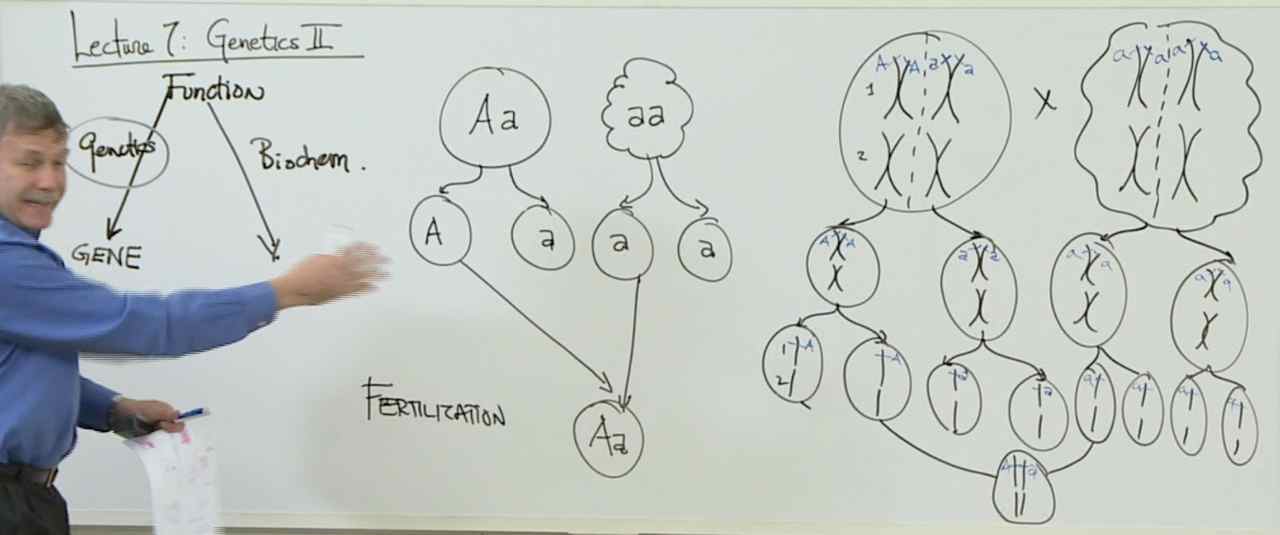 Lecture 7: Genetics II
Function
Genetics
Biochem.
GENE
Aa
aa
A
a
a
a
FERTILIZATION
Aa
A
A
a
a
1
2
a
a
a
a
x
A
A
a
a
a
a
a
a
1
A
2
A
a
a
a
a
a
A
a